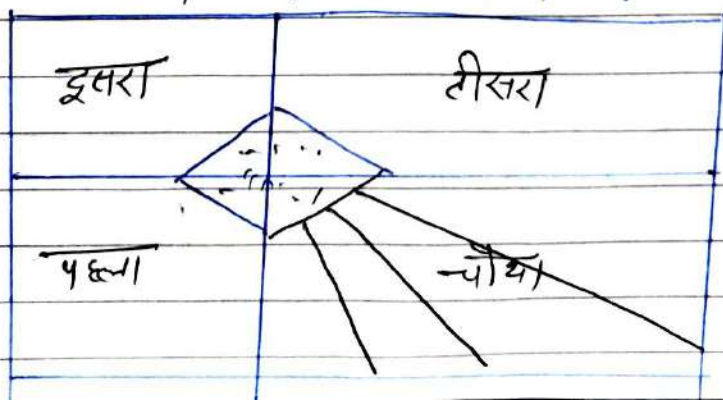 दूसरा तीसरा
पहला चौथा